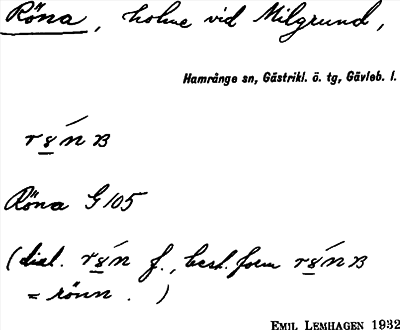 Röna, holme vid Milgrund,
Hamrånge sn, Gästrikl. ö. tg, Gävleb. l.
Röna G 105
(dial. f., best. form
= rönn.)
EMIL LEMHAGEN 1932